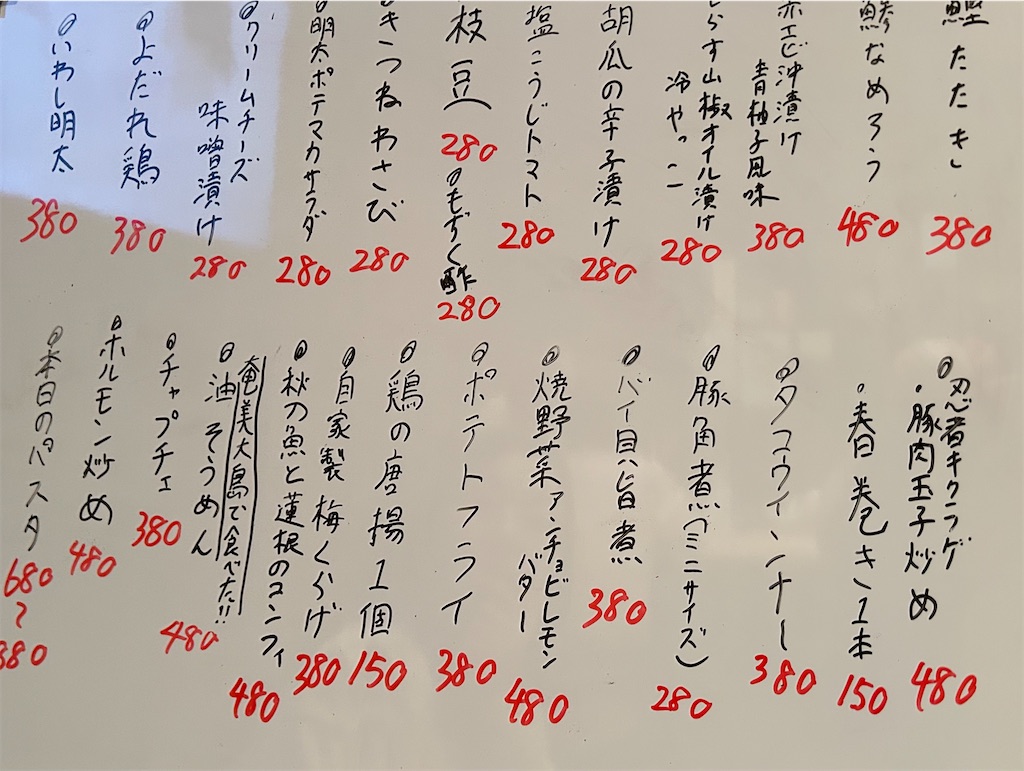 たたき
380
鯵なめろう
480
赤エビ沖漬け
青柚子風味
380
しらす山椒オイル漬け
冷やっこ
280
胡瓜の辛子漬け
280
塩こうじトマト
280
枝豆
280
◎もずく酢
280
きつねわさび
280
明太ポテマカサラダ
280
◎クリームチーズ
味噌漬け
280
◎よだれ鶏
380
◎いわし明太
380
◎忍者キクラゲ
・豚肉玉子炒め
480
・春巻き1本
150
◎タコウインナー
380
◎豚角煮(ミニサイズ)
280
◎バイ貝旨煮
380
◎焼野菜アンチョビレモン
バター
480
◎ポテトフライ
380
◎鶏の唐揚1個
150
◎自家製梅くらげ
380
◎秋の魚と蓮根のコンフィ
480
奄美大島で食べた!!
◎油そうめん
480
◎チャプチェ
380
◎ホルモン炒め
480
◎本日のパスタ
680
〜
380